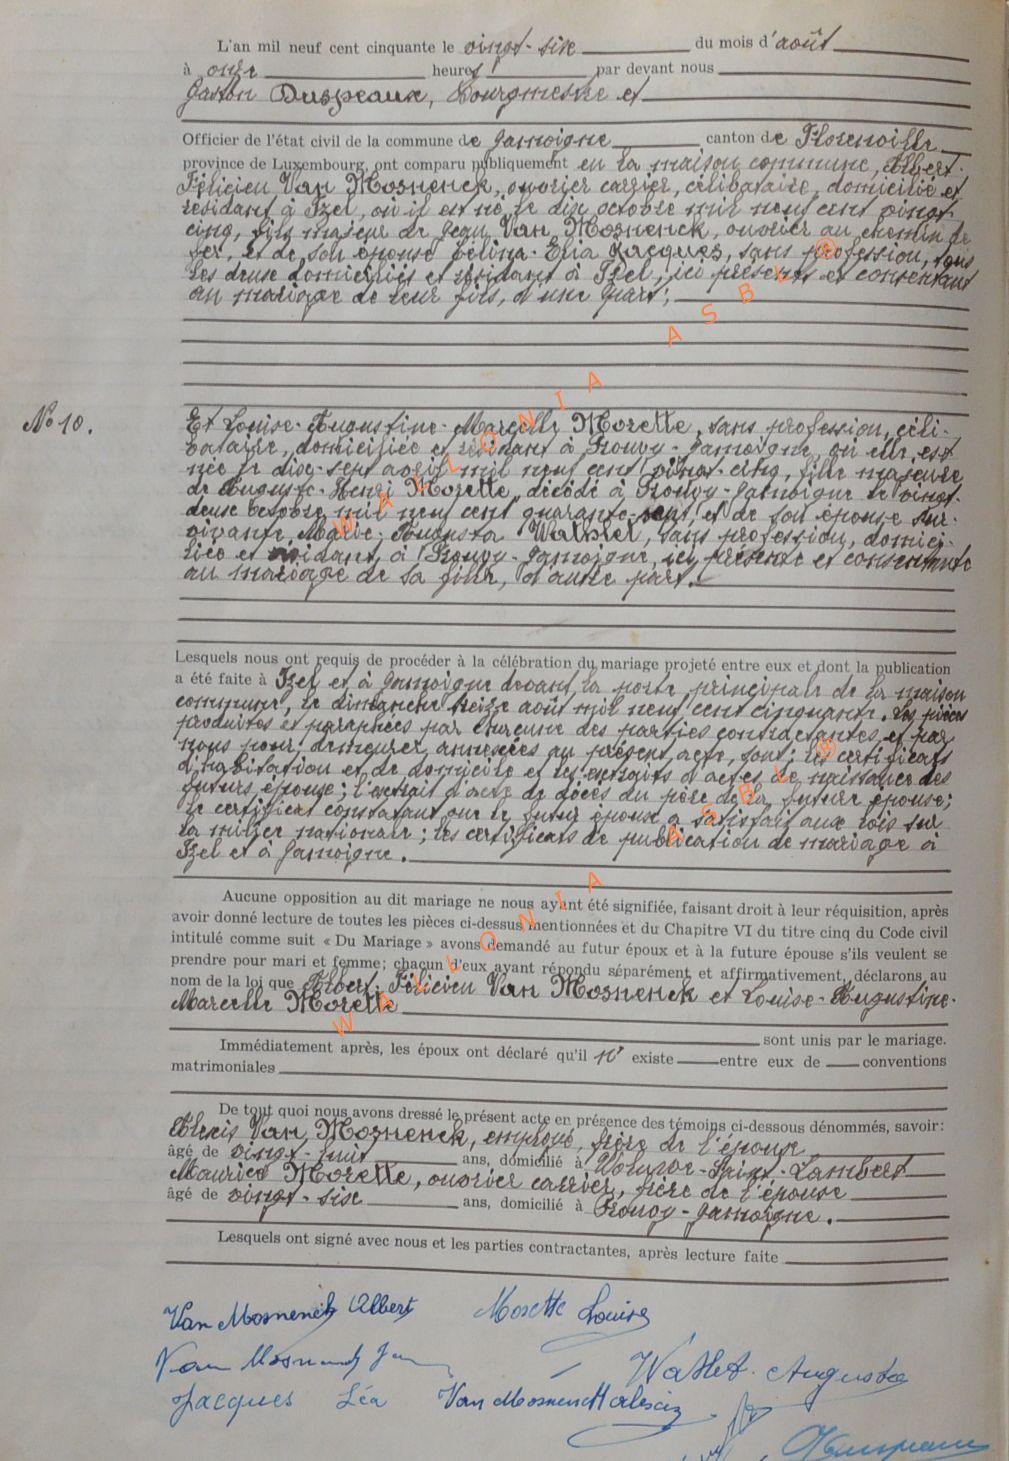 L'an mil neuf cent cinquante le vingt-six du mois d'août
à onze heures par devant nous
Gaston Duspeaux, Bourgmestre et
Officier de l'état civil de la commune de Jamoigne canton de Florenville
province de Luxembourg, ont comparu publiquement en la maison commune, Albert-
Félicien Van Mosnenck, ouvrier carrier, célibataire, domicilié et
résidant à Izel, où il est né le dix octobre mil neuf cent vingt-
cinq, fils majeur de Jean Van Mosnenck, ouvrier au chemin de
fer, et de son épouse Jacques, sans profession, tous
les deux domiciliés et résidant à Izel, ici présents et consentant
au mariage de leur fils, d'une part;
No 10.
Et Louise-Augustine-Marcelle Morette, sans profession, céli-
bataire, domiciliée et résidant à Prouvy-Jamoigne, où elle est
née le dix-sept avril mil neuf cent vingt-cinq, fille majeure
de Auguste-Henri Morette, décédé à Prouvy-Jamoigne le vingt-
deux octobre mil neuf cent quarante-sept, et de son épouse sur-
vivante, Augusta Wathlet, sans profession, domici-
liée et résidant à Prouvy-Jamoigne, ici présente et consentante
au mariage de sa fille, d'autre part.
Lesquels nous ont requis de procéder à la célébration du mariage projeté entre eux et dont la publication
a été faite à Izel et à Jamoigne devant la porte principale de la maison
commune, le dimanche treize août mil neuf cent cinquante. Les pièces
produites et paraphées par chacune des parties contractantes et par
nous pour demeurer annexées au présent acte, sont: les certificats
d'habitation et de domicile et les extraits d'actes de naissance des
futurs époux; l'extrait d'acte de décès du père de la future épouse;
le certificat constatant que le futur époux a satisfait aux lois sur
la milice nationale; les certificats de publication de mariage à
Izel et à Jamoigne.
Aucune opposition au dit mariage ne nous ayant été signifiée, faisant droit à leur réquisition, après
avoir donné lecture de toutes les pièces ci-dessus mentionnées et du Chapitre VI du titre cinq du Code civil
intitulé comme suit « Du Mariage » avons demandé au futur époux et à la future épouse s'ils veulent se
prendre pour mari et femme; chacun d'eux ayant répondu séparément et affirmativement, déclarons au
nom de la loi que Albert-Félicien Van Mosnenck et Louise-Augustine-
Marcelle Morette
sont unis par le mariage.
Immédiatement après, les époux ont déclaré qu'il n' existe entre eux de conventions
matrimoniales
De tout quoi nous avons dressé le présent acte en présence des témoins ci-dessous dénommés, savoir:
Alexis Van Mosnenck, employé, frère de l'époux
âgé de vingt-huit ans, domicilié à Woluwe-Saint-Lambert
Maurice Morette, ouvrier carrier, frère de l'épouse
âgé de vingt-six ans, domicilié à Prouvy-Jamoigne.
Lesquels ont signé avec nous et les parties contractantes, après lecture faite
Van Mosnenck Albert Morette Louise
Van Mosnenck Wathlet Augusta
Jacques Léa Van Mosnenck Alexis
WALLONIA ASBL ®
WALLONIA ASBL ®